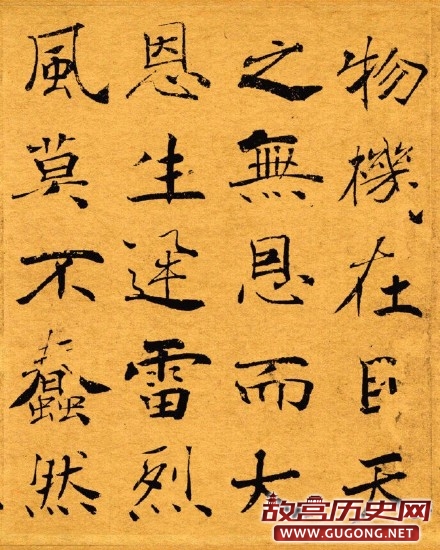 物機在目天
之無恩而大
恩生迅雷烈
風莫不蠢然
故宫历史网
WWW.GUGONG.NET